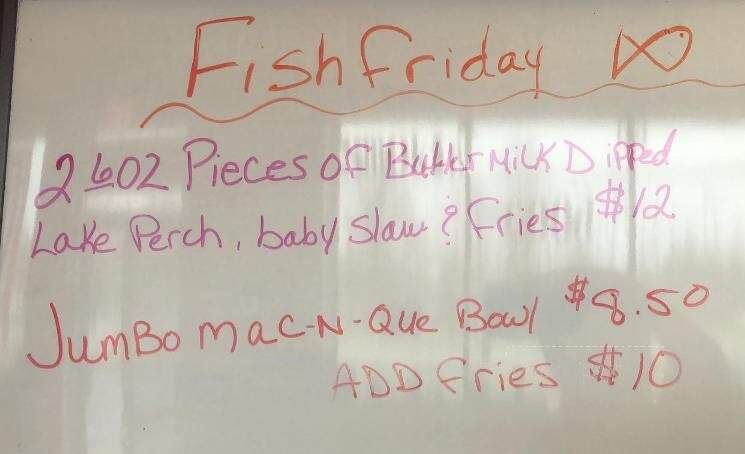 Fish Friday
2 6oz Pieces of Buttermilk Dipped
Lake Perch, baby Slaw & fries $12
Jumbo Mac-N-Que Bowl $8.50
ADD fries $10